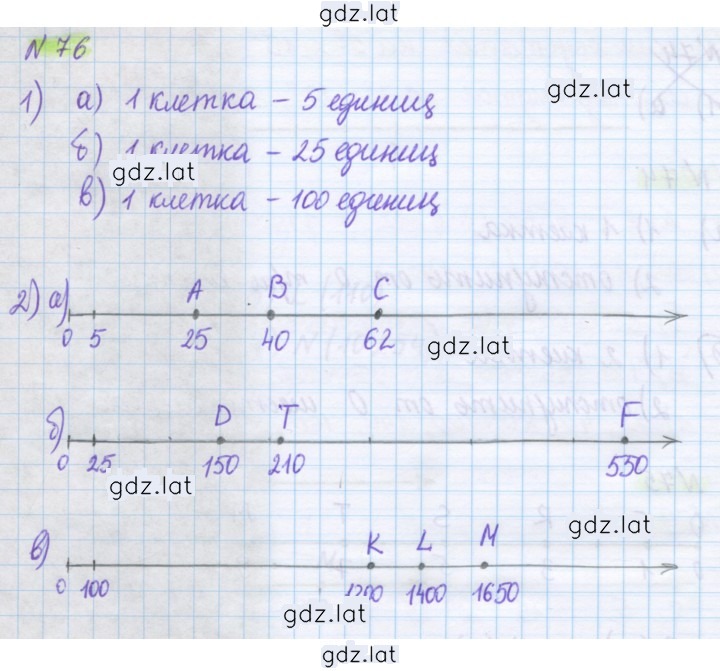 gdz.lat
N 76
1) а) 1 клетка – 5 единиц
gdz.lat
б) 1 клетка – 25 единиц
gdz.lat
в) 1 клетка – 100 единиц
2) а) A B C
0 5 25 40 62
gdz.lat
б) D T F
0 25 150 210 550
gdz.lat
gdz.lat
в) K L M
0 100 1200 1400 1650
gdz.lat
gdz.lat